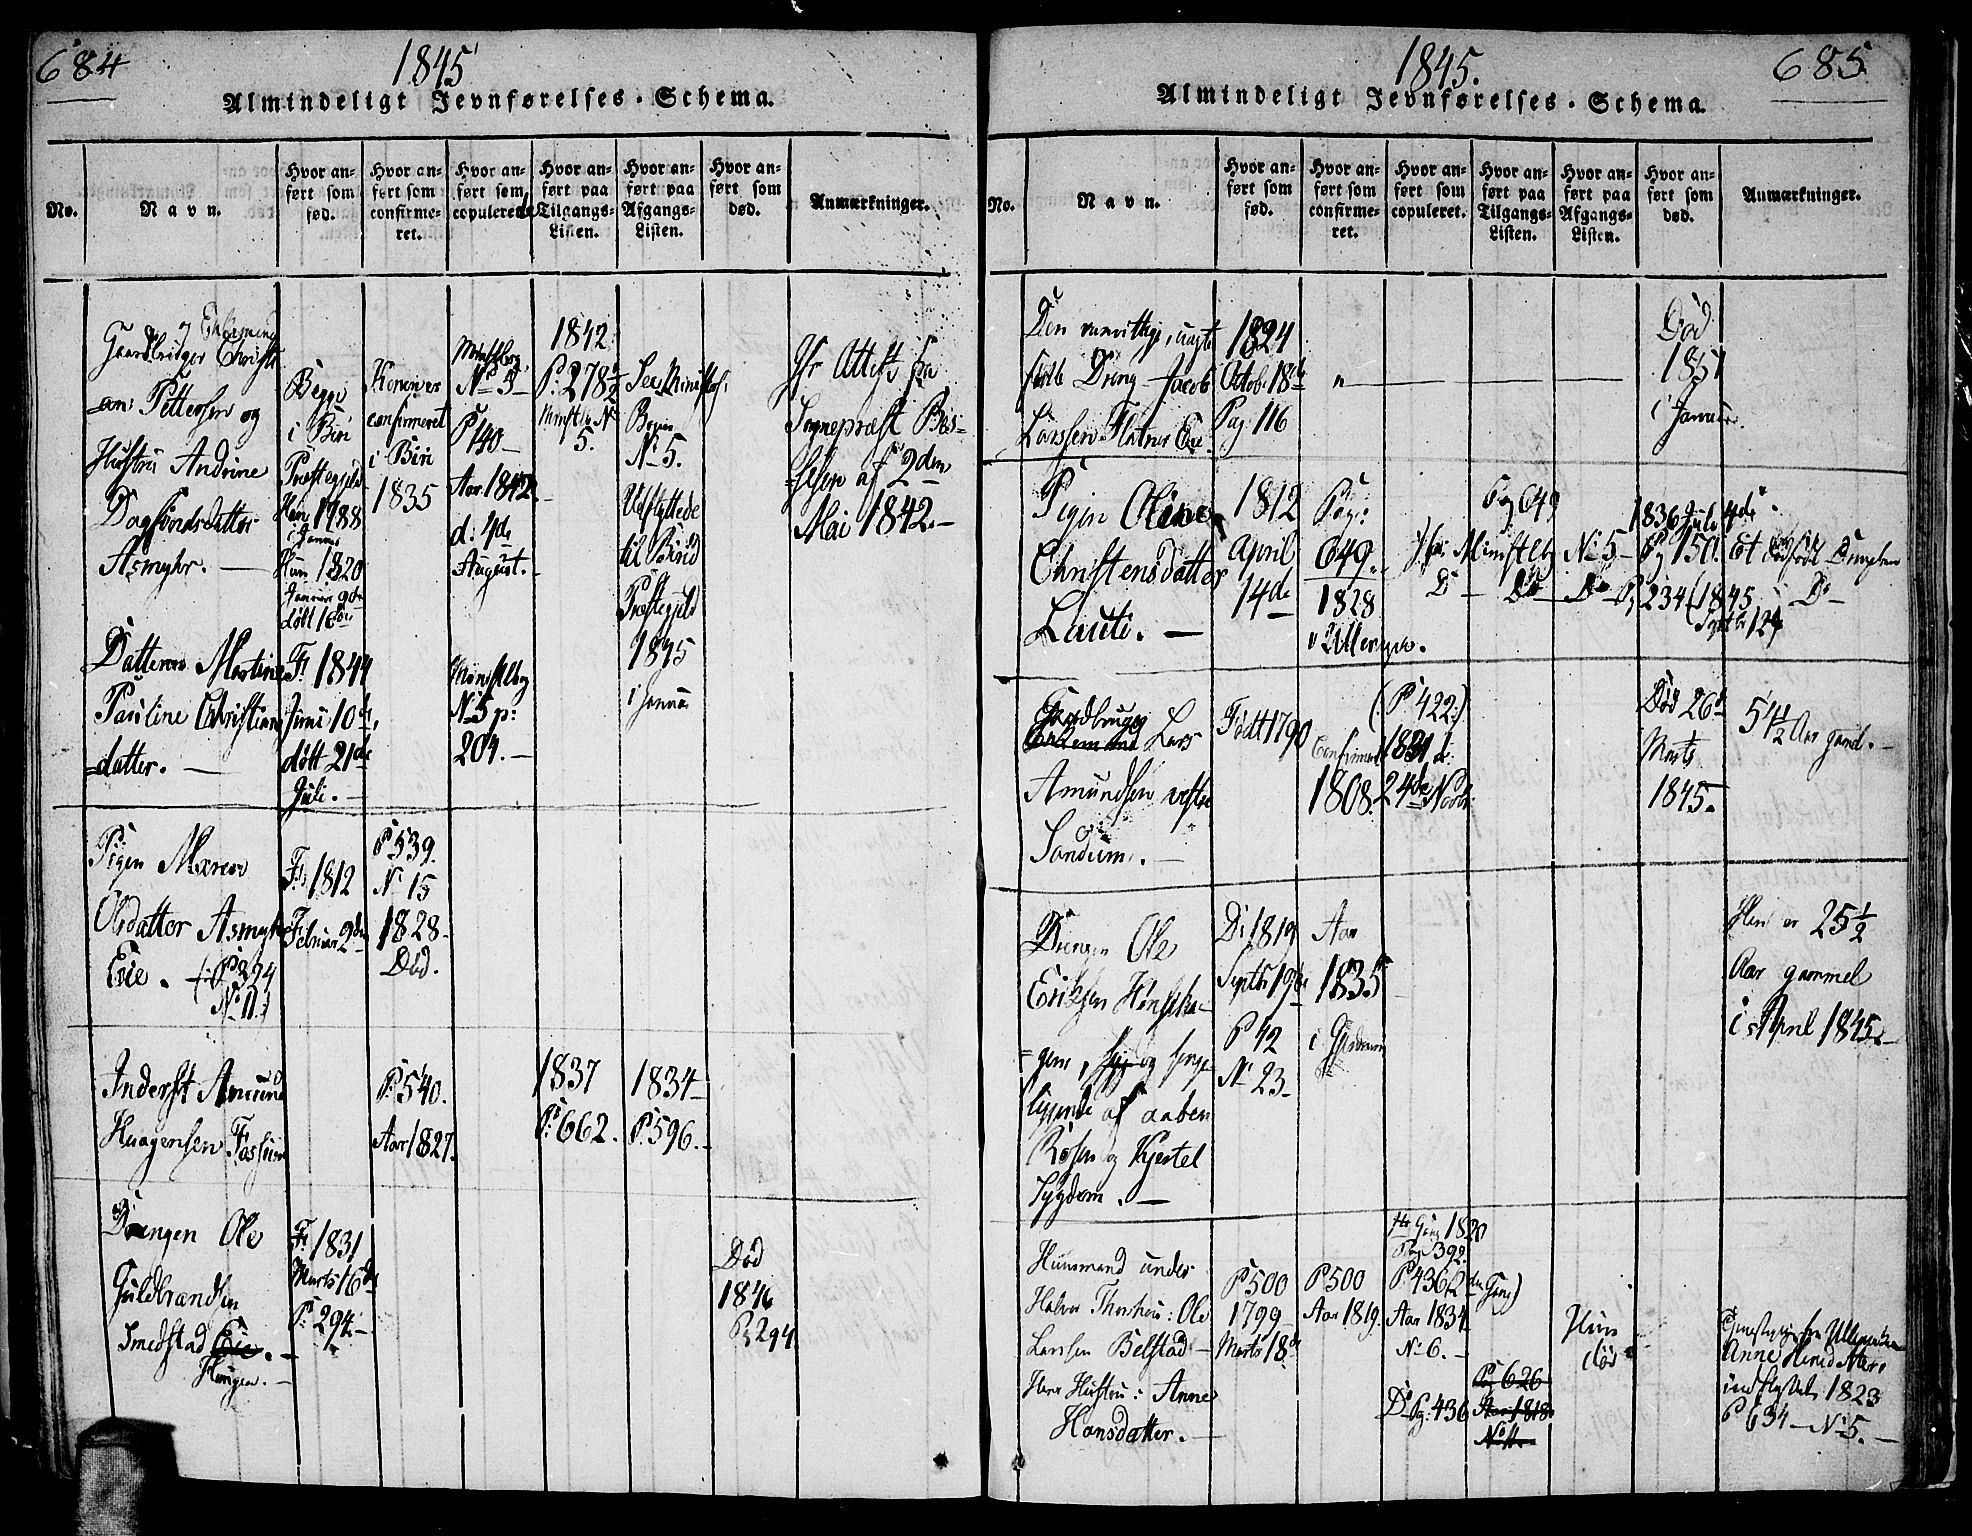 684
1845
Almindeligt Jevnførelses-Schema.
No.
Navn.
Hvor an-
ført som
fød.
Hvor an-
ført som
confirme-
ret.
Hvor an-
ført som
copulerede
Hvor an-
ført paa
Tilgangs-
Listen.
Hvor an-
ført paa
Afgangs-
Listen.
Hvor an-
ført som
død.
Anmærkninger.
Gaardbruger Christi
=an Pettersen og
Hustru Andrine
Dagfindsdatter
Asmyhr. —
Begge
i Biri
Præstegjeld
Han 1788
i Januar
Hun 1820
Januar 9de
døbt 16de
Konen er
confirmeret
i Biri
1835
Ministbog
No 5
P 140
Aar 1842
d: 4de
August.
1842
P: 278½
Minist. b. N
5.
See Ministbog
No 5.
Udflyttede
til Biri
Præstegjeld
1845
i Januar
Attest fra
Sognepræst
af 2den
Mai 1842.—
Datteren Martine
Pauline Christians
=datter. —
F: 1844
Juni 10de,
døbt 21de
Juli. —
Ministbog
No 5 p:
204. —
Pigen Maren
Olsdatter Asmyhr
Eie. — (P 324
No 11.)
F: 1812
Februar 2den
P 539.
No 15
1828
Død.
Inderst Amund
Haagensen Fossum
P: 540.
Aar 1827.
1837
P: 662.
1834
P. 596.
Drengen Ole
Guldbrandsen
Smedstad Eie. —
Haugen. —
F: 1831
Marts 16de
P: 294.—
Død
1846
Pg 294
685
1845.
Almindeligt Jevnførelses-Schema.
No.
Navn.
Hvor an-
ført som
fød.
Hvor an-
ført som
confirme-
ret.
Hvor an-
ført som
copuleret.
Hvor an-
ført paa
Tilgangs-
Listen.
Hvor an-
ført paa
Afgangs-
Listen.
Hvor an-
ført som
død.
Anmærkninger.
Den vanvittige, uægte
fødte Dreng Jacob
Larssen Flatner Eie
1824
Octob. 18de
Pag 116
Død
1851
i Januar.
Pigen Oline
Christensdatter
Laute. —
1812
April
14de
Pag:
649.
1828
i Ullensager.
Pag 649
i Ministbog No 5
Do Do Do
1836 Juli 4de
Pg 150.
Pg 234 (1845
Septbr 12te
Et dødfødt Drengebarn
Do
Gaardbruger
Lars
Amundsen vestre
Sandum. —
Født 1790
Confirmeret
1808.
(P 422.)
1821 d.
24de Novbr.
Død 26de
Marts
1845.
54½ Aar gaml. —
Drengen Ole
Eriksen
=gen, syg og senge
liggende af aaben
Rosen og Kjertel
Sygdom. —
D: 1819
Septbr 19de
P 42
No 23.
Aar
1835
i
Han er 25½
Aar gammel
i April 1845. —
Huusmand under
Ole
Larssen Belstad —
Hans Hustru: Anne
Hansdatter. —
P 500
1799
Marts 18de
P 500
Aar 1819.
1ste Gang 1820
Pag 392.
P. 436 (2den Gang)
Aar 1834
No 6. —
Do Pg: 436
Pag 626
Aar 1818
No 4
Hun
død
Ullensaker
Anne
indflyttet 1823
P 634 — No 5. —